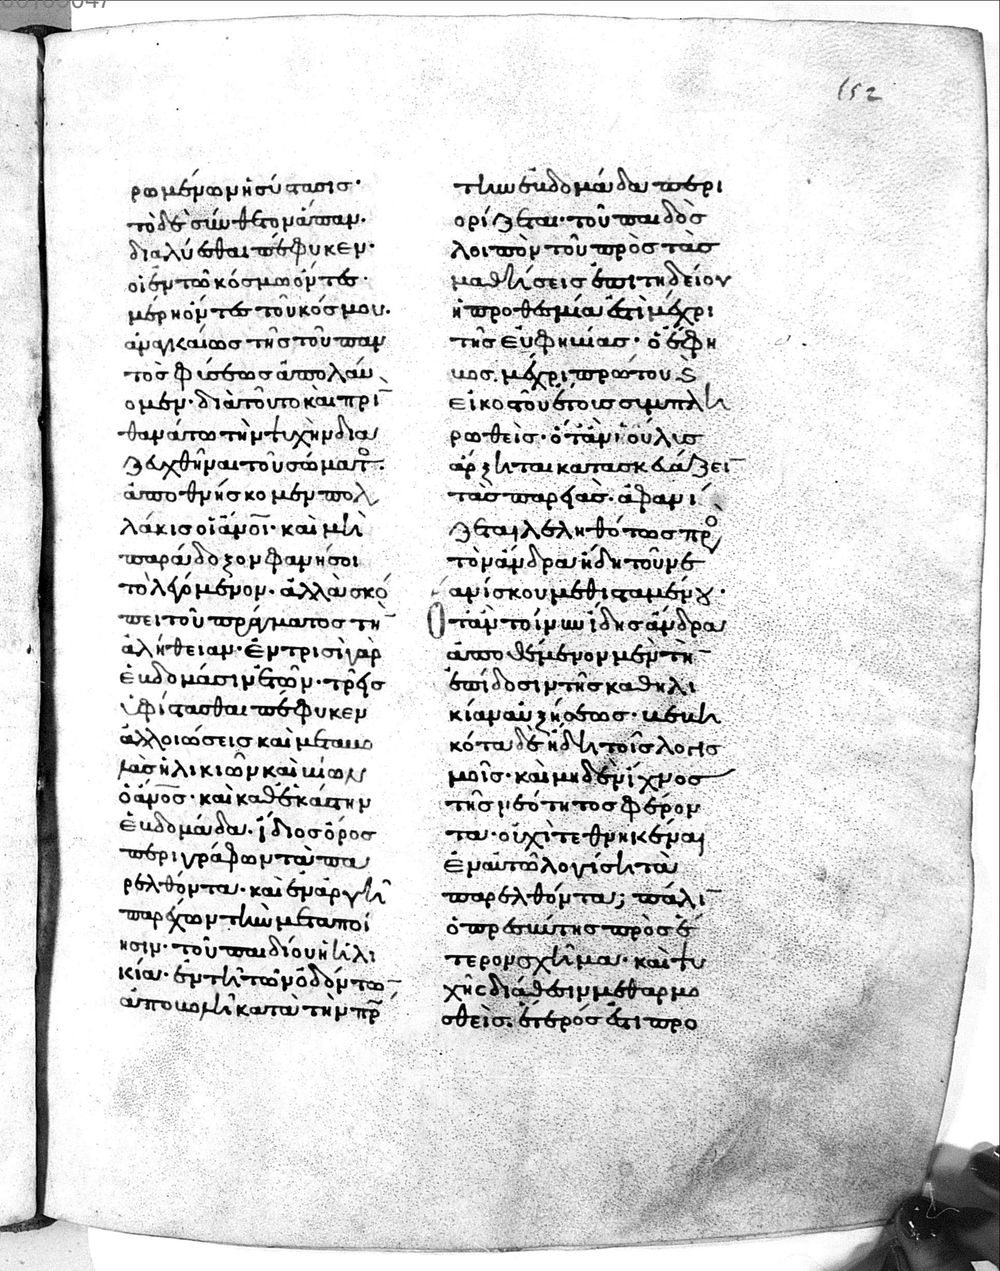 152
ρωμένων ἡ σύστασις·
τὸ δὲ σύνθετον ἅπαν·
διαλύεσθαι πέφυκεν·
οἱ ἐν τῶ κόσμω ὄντες·
μέρη ὄντες τοῦ κόσμου·
ἀναγκαίως τῆς τοῦ παν
τὸς φύσεως ἀπολαύ
ομεν· διὰ τοῦτο καὶ πρὶ
θανάτω τὴν ψυχὴν δια
ζευχθῆναι τοῦ σώματο·
ἀποθνήσκομεν πολ
λάκις οἱ ἄνοι· καὶ μὴ
παράδοξον φανῆ σοι
τὸ λεγόμενον· ἀλλὰ σκό
πει τοῦ πράγματος τὴ
ἀλήθειαν· ἐν τρισὶ γὰρ
ἑβδομάσιν ἐτῶν· τρεῖς
ὑφίστασθαι πέφυκεν
ἀλλοιώσεις καὶ μεταβο
λὰς ἡλικιῶν καὶ βίων
ὁ ἄνος· καὶ καθ' ἑκάστην
ἑβδομάδα· ἴδιος ὅρος
περιγράφων τὰ πα
ρελθόντα· καὶ ἐναργῆ
παρέχων τὴν μεταποί
ησιν· τοῦ παιδίου ἡ ἡλι
κία· ἐν τῆ τῶν ὀδόντω
ἀποβολῆ κατὰ τὴν πρ
τὴν ἑβδομάδα περι
ορίζεται· τοῦ παιδὸς
λοιπὸν τοῦ πρὸς τὰς
μαθήσεις ἐπιτηδείου
ἡ προθεσμία ἐστὶ μέχρι
τῆς εὐφηβίας· ὁ ἔφη
βος· μέχρι πρώτου κ
εἰκοστοῦ ἔτους συμπλη
ρωθεὶς· ὅτ' ἂν ἰούλις
ἄρξηται κατασκιάζει
τὰς παρειὰς· ἀφανί
ζεται λεληθότως πρ
τὸν ἄνδρα ἤδη τοῦ νε
ανίσκου μεθισταμένου·
Ὅτ' ἂν τοίνυν ἴδης ἄνδρα
ἀποθέμενον μὲν τὴ
ἐπίδοσιν τῆς καθ' ἡλι
κίαν αὐξήσεως· βεβη
κότα δὲ ἤδη τοῖς λογις
μοῖς· καὶ μηδὲν ἴχνος
τῆς νεότητος φέρον
τα· οὐχὶ τεθνηκέναι
ἐν αὐτῶ λογίση τὰ
παρελθόντα; πάλι
ὁ πρεσβύτης πρὸς ἕ
τερον σχῆμα· καὶ ψυ
χῆς διάθεσιν μεθαρμο
σθεὶς· ἕτερός ἐστι προ